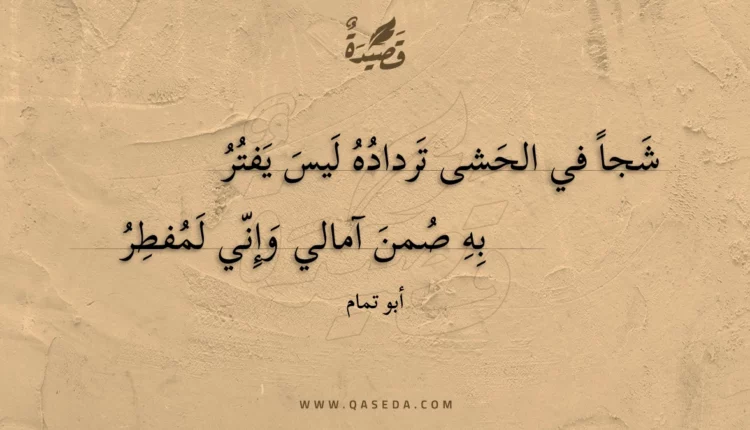 قَصِيْدَةٌ
شَجاً في الحَشى تَردادُهُ لَيسَ يَفتُرُ
بِهِ صُمنَ آمالي وَإِنّي لَمُفطِرُ
أبو تمام
WWW.QASEDA.COM